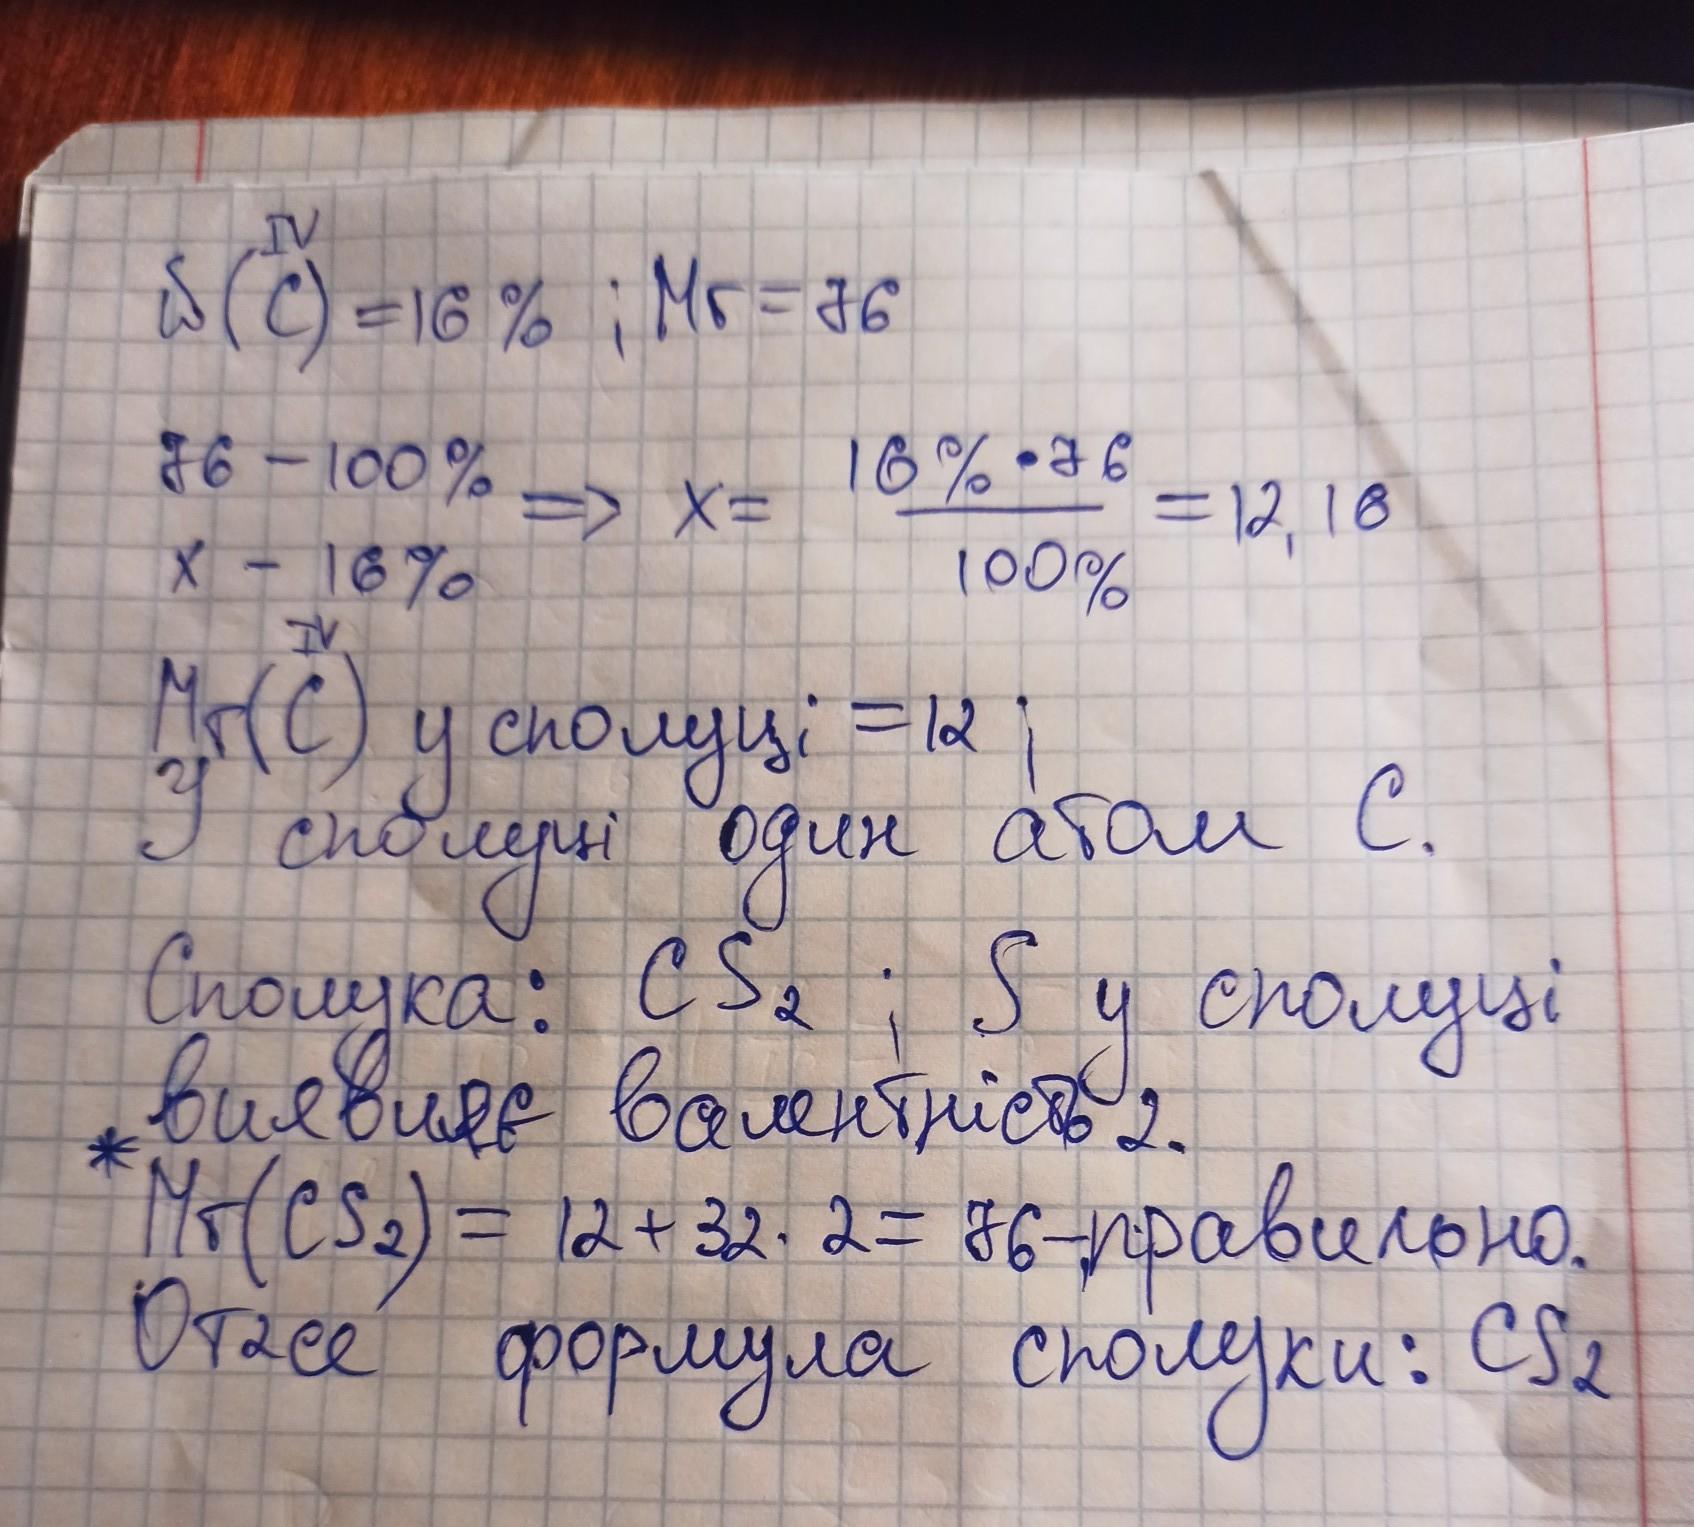 IV
W(C) = 16% ; Mr = 76
76 - 100%
x - 16%
=> x = 16% • 76 / 100% = 12,16
IV
Mr(C) у сполуці = 12 ;
У сполуці один атом С.
Сполука: CS2 ; S у сполуці
виявляє валентність 2.
* Mr(CS2) = 12 + 32 · 2 = 76 - правильно.
Отже формула сполуки: CS2